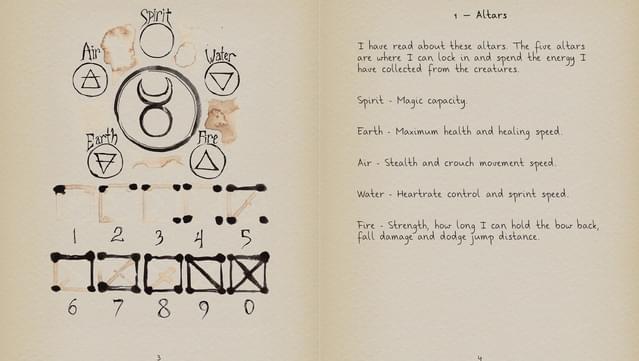 Spirit
Air
Water
Earth
Fire
1 2 3 4 5
6 7 8 9 0
3
1 — Altars
I have read about these altars. The five altars
are where I can lock in and spend the energy I
have collected from the creatures.
Spirit - Magic capacity.
Earth - Maximum health and healing speed.
Air - Stealth and crouch movement speed.
Water - Heartrate control and sprint speed.
Fire - Strength, how long I can hold the bow back,
fall damage and dodge jump distance.
4